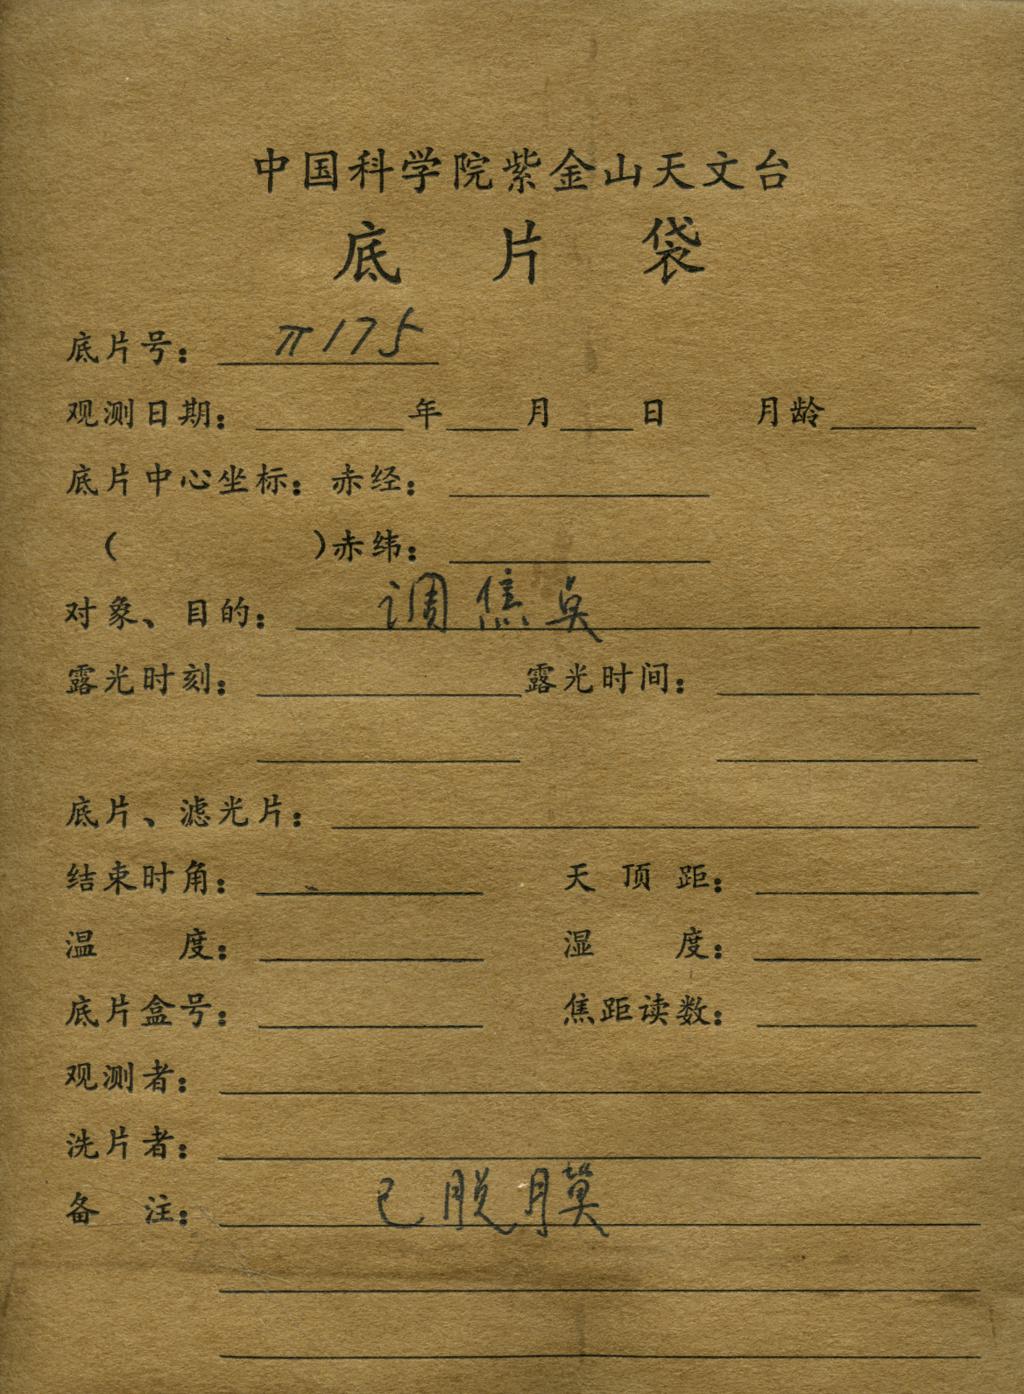 中国科学院紫金山天文台
底片袋
底片号：π175
观测日期：年月日 月龄
底片中心坐标：赤经：
( )赤纬：
对象、目的：调焦点
露光时刻：露光时间：
底片、滤光片：
结束时角：天顶距：
温度：湿度：
底片盒号：焦距读数：
观测者：
洗片者：
备注：已脱膜